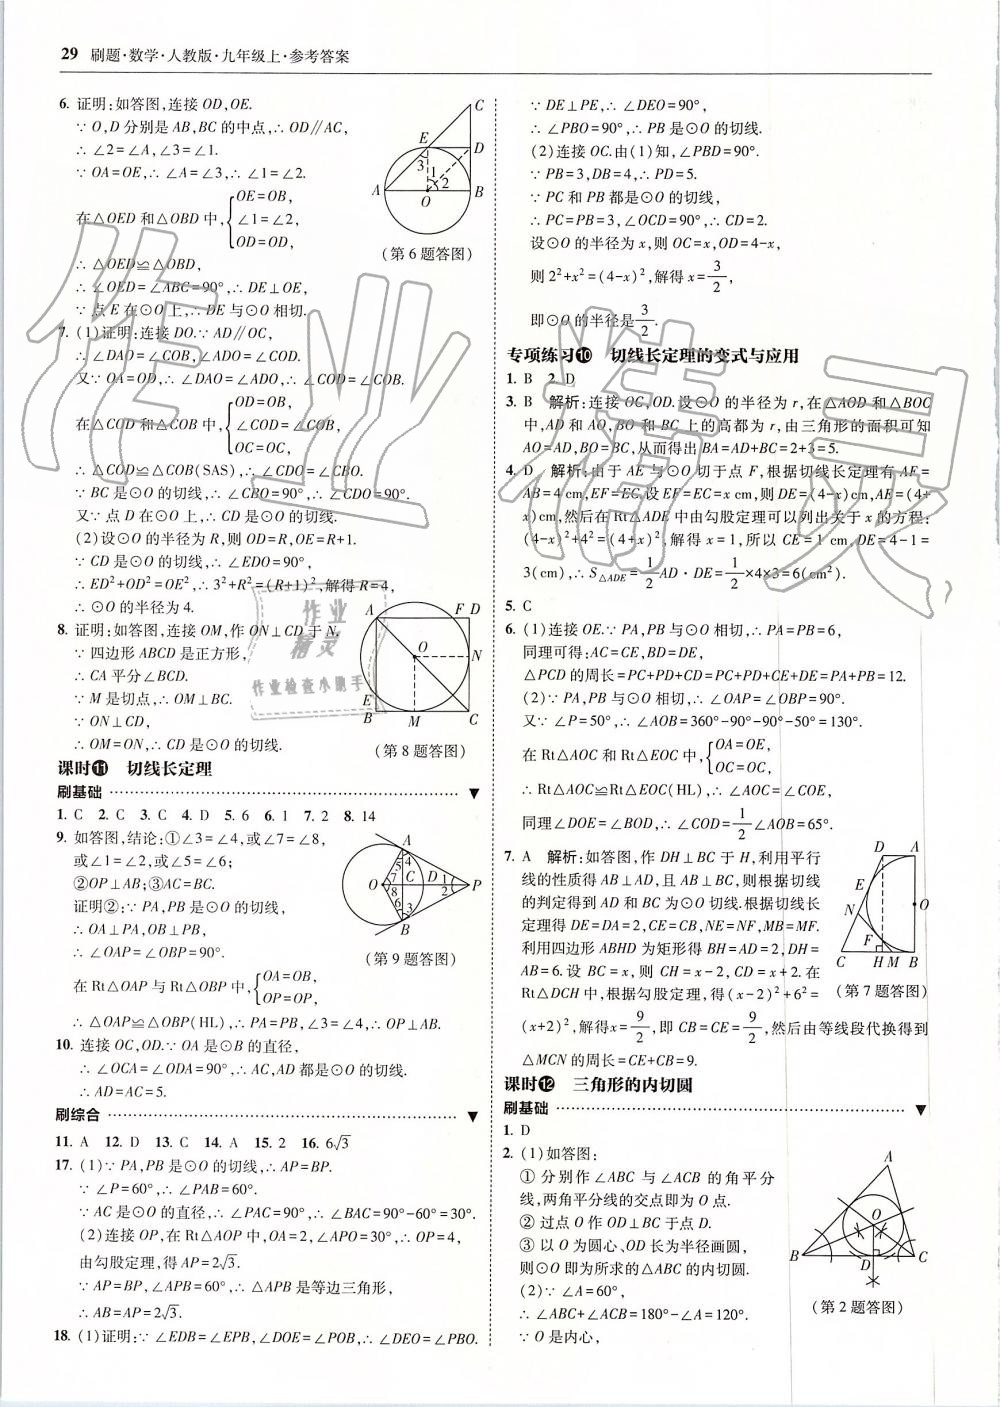 29 刷题·数学·人教版·九年级上·参考答案
6. 证明:如答图,连接 OD,OE.
∵ O,D 分别是 AB,BC 的中点,∴ OD∥AC,
∴ ∠2=∠A,∠3=∠1.
∵ OA=OE,∴ ∠A=∠3,∴ ∠1=∠2.
在△OED 和△OBD 中,{OE=OB,
∠1=∠2,
OD=OD,
∴ △OED≌△OBD,
∴ ∠OED=∠ABC=90°,∴ DE⊥OE,
∵ 点 E 在⊙O 上,∴ DE 与⊙O 相切.
(第 6 题答图)
7. (1)证明:连接 DO.∵ AD∥OC,
∴ ∠DAO=∠COB,∠ADO=∠COD.
又∵ OA=OD,∴ ∠DAO=∠ADO,∴ ∠COD=∠COB.
在△COD 和△COB 中,{OD=OB,
∠COD=∠COB,
OC=OC,
∴ △COD≌△COB(SAS),∴ ∠CDO=∠CBO.
∵ BC 是⊙O 的切线,∴ ∠CBO=90°,∴ ∠CDO=90°.
又∵ 点 D 在⊙O 上,∴ CD 是⊙O 的切线.
(2)设⊙O 的半径为 R,则 OD=R,OE=R+1.
∵ CD 是⊙O 的切线,∴ ∠EDO=90°,
∴ ED²+OD²=OE²,∴ 3²+R²=(R+1)²,解得 R=4,
∴ ⊙O 的半径为 4.
8. 证明:如答图,连接 OM,作 ON⊥CD 于 N.
∵ 四边形 ABCD 是正方形,
∴ CA 平分∠BCD.
∵ M 是切点,∴ OM⊥BC.
∵ ON⊥CD,
∴ OM=ON,∴ CD 是⊙O 的切线.
(第 8 题答图)
课时⓫ 切线长定理
刷基础
1. C 2. C 3. C 4. D 5. 6 6. 1 7. 2 8. 14
9. 如答图,结论:①∠3=∠4,或∠7=∠8,
或∠1=∠2,或∠5=∠6;
②OP⊥AB;③AC=BC.
证明②:∵ PA,PB 是⊙O 的切线,
∴ OA⊥PA,OB⊥PB,
∴ ∠OAP=∠OBP=90°.
在 Rt△OAP 与 Rt△OBP 中,{OA=OB,
OP=OP,
∴ △OAP≌△OBP(HL),∴ PA=PB,∠3=∠4,∴ OP⊥AB.
(第 9 题答图)
10. 连接 OC,OD.∵ OA 是⊙B 的直径,
∴ ∠OCA=∠ODA=90°,∴ AC,AD 都是⊙O 的切线.
∴ AD=AC=5.
刷综合
11. A 12. D 13. C 14. A 15. 2 16. 6√3
17. (1)∵ PA,PB 是⊙O 的切线,∴ AP=BP.
∵ ∠P=60°,∴ ∠PAB=60°.
∵ AC 是⊙O 的直径,∴ ∠PAC=90°,∴ ∠BAC=90°-60°=30°.
(2)连接 OP,在 Rt△AOP 中,OA=2,∠APO=30°,∴ OP=4,
由勾股定理,得 AP=2√3.
∵ AP=BP,∠APB=60°,∴ △APB 是等边三角形,
∴ AB=AP=2√3.
18. (1)证明:∵ ∠EDB=∠EPB,∠DOE=∠POB,∴ ∠DEO=∠PBO.
∵ DE⊥PE,∴ ∠DEO=90°,
∴ ∠PBO=90°,∴ PB 是⊙O 的切线.
(2)连接 OC.由(1)知,∠PBD=90°.
∵ PB=3,DB=4,∴ PD=5.
∵ PC 和 PB 都是⊙O 的切线,
∴ PC=PB=3,∠OCD=90°,∴ CD=2.
设⊙O 的半径为 x,则 OC=x,OD=4-x,
则 2²+x²=(4-x)²,解得 x=3/2,
即⊙O 的半径是3/2.
专项练习❿ 切线长定理的变式与应用
1. B 2. D
3. B 解析:连接 OC,OD.设⊙O 的半径为 r,在△AOD 和△BOC
中,AD 和 AO,BO 和 BC 上的高都为 r,由三角形的面积可知
AO=AD,BO=BC,从而得出 BA=AD+BC=2+3=5.
4. D 解析:由于 AE 与⊙O 切于点 F,根据切线长定理有 AF=
AB=4 cm,EF=EC,设 EF=EC=x cm,则 DE=(4-x)cm,AE=(4+
x)cm,然后在 Rt△ADE 中由勾股定理可以列出关于 x 的方程:
(4-x)²+4²=(4+x)²,解得 x=1,所以 CE=1 cm,DE=4-1=
3(cm),∴ S△ADE=1/2AD·DE=1/2×4×3=6(cm²).
5. C
6. (1)连接 OE.∵ PA,PB 与⊙O 相切,∴ PA=PB=6,
同理可得:AC=CE,BD=DE,
△PCD 的周长=PC+PD+CD=PC+PD+CE+DE=PA+PB=12.
(2)∵ PA,PB 与⊙O 相切,∴ ∠OAP=∠OBP=90°.
又∵ ∠P=50°,∴ ∠AOB=360°-90°-90°-50°=130°.
在 Rt△AOC 和 Rt△EOC 中,{OA=OE,
OC=OC,
∴ Rt△AOC≌Rt△EOC(HL),∴ ∠AOC=∠COE,
同理∠DOE=∠BOD,∴ ∠COD=1/2∠AOB=65°.
7. A 解析:如答图,作 DH⊥BC 于 H,利用平行
线的性质得 AB⊥AD,且 AB⊥BC,则根据切线
的判定得到 AD 和 BC 为⊙O 切线.根据切线长
定理得 DE=DA=2,CE=CB,NE=NF,MB=MF.
利用四边形 ABHD 为矩形得 BH=AD=2,DH=
AB=6.设 BC=x,则 CH=x-2,CD=x+2.在
Rt△DCH 中,根据勾股定理,得(x-2)²+6²=
(x+2)²,解得x=9/2,即 CB=CE=9/2,然后由等线段代换得到
△MCN 的周长=CE+CB=9.
(第 7 题答图)
课时⓬ 三角形的内切圆
刷基础
1. D
2. (1)如答图:
①分别作∠ABC 与∠ACB 的角平分
线,两角平分线的交点即为 O 点.
②过点 O 作 OD⊥BC 于点 D.
③以 O 为圆心、OD 长为半径画圆,
则⊙O 即为所求的△ABC 的内切圆.
(2)∵ ∠A=60°,
∴ ∠ABC+∠ACB=180°-∠A=120°.
∵ O 是内心,
(第 2 题答图)
作业精灵
作业
精灵
作业检查小助手